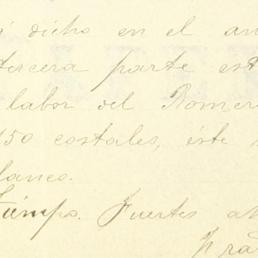 dicho en el an
tercera parte est
labor del Romer
150 costales, éste
lanco.
Tiempo. Fuertes a